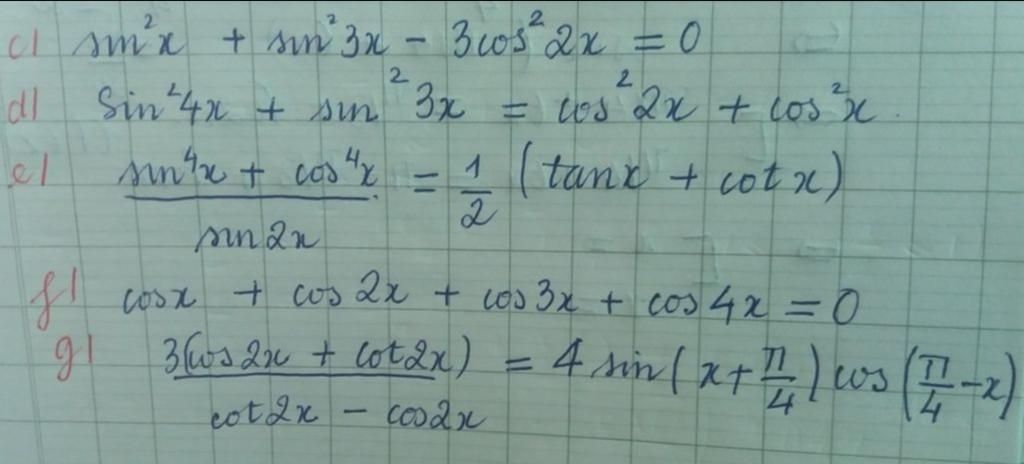 c| sin²x + sin²3x - 3cos²2x = 0
d| Sin²4x + sin²3x = cos²2x + cos²x.
e| (sin⁴x + cos⁴x)/(sin2x) = 1/2 (tanx + cotx)
f| cosx + cos2x + cos3x + cos4x = 0
g| 3(cos2x + cot2x)/(cot2x - cos2x) = 4 sin(x + π/4) cos(π/4 - x)